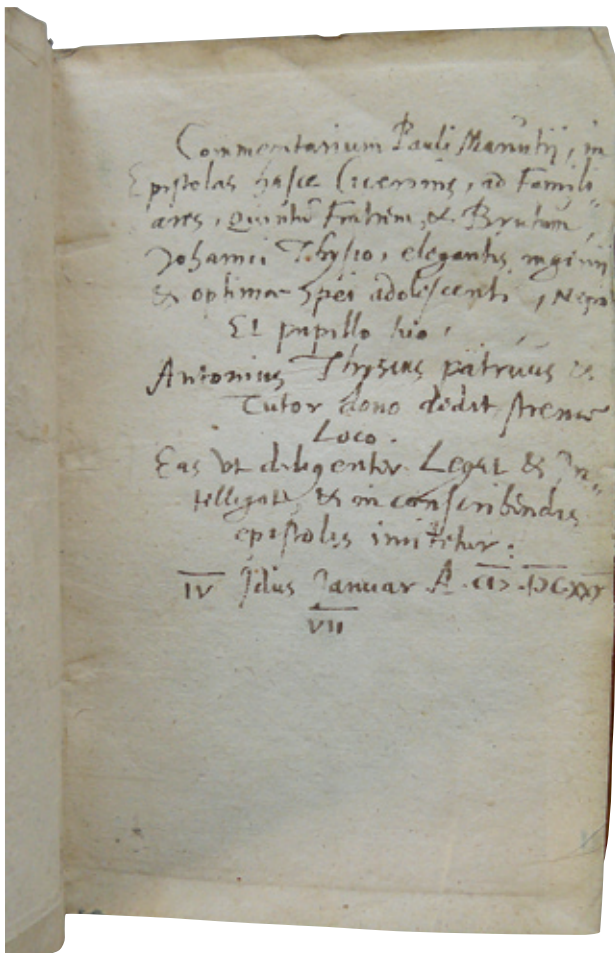 Commentarium Pauli Manutij, in
Epistolas hasce Ciceronis, ad Famili-
ares, Quintū Fratrem, & Brutum,
Johanni Thysio, elegantis ingenii
& optimae spei adolescenti, Nepoti
Et pupillo suo,
Antonius Thysius patruus &
Tutor dono dedit strenae
Loco.
Eas ut diligenter Legat & In-
telligat, & in conscribendis
epistolis imitetur.
IV Idus Januar A. CIↃ.IↃCXXX
VII